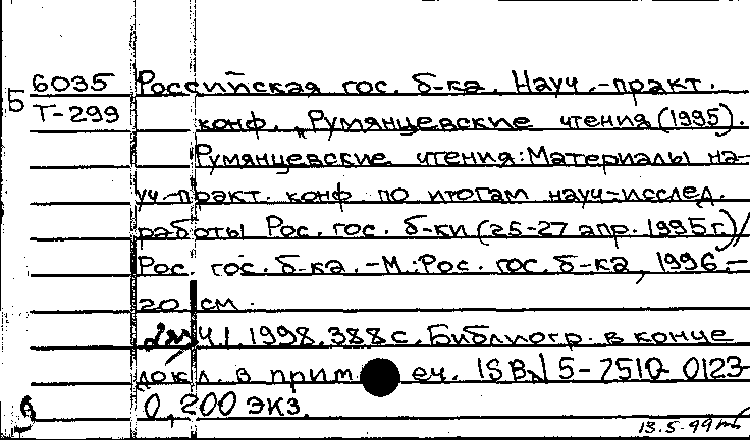 Б 6035 Российская гос. б-ка. Науч.-практ.
Т-299 конф. „Румянцевские чтения (1995).
Румянцевские чтения: Материалы на-
уч.-практ. конф. по итогам науч-исслед.
работы Рос. гос. б-ки (25-27 апр. 1995г.)/
Рос. гос. б-ка. -М.: Рос. гос. б-ка, 1996.-
20 см.
Ч.1. 1998. 388с. Библиогр. в конце
докл. в примеч. ISBN 5-7510-0123-
0, 200 экз.
13.5.99